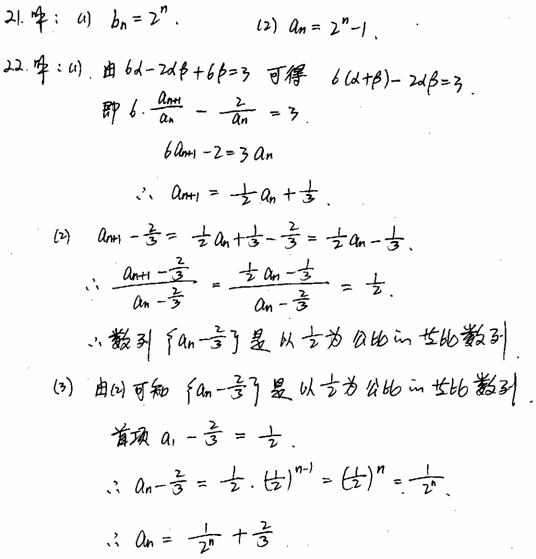 21. 解: (1) bₙ = 2ⁿ. (2) aₙ = 2ⁿ-1.
22. 解: (1). 由 6α-2αβ+6β=3 可得 6(α+β)-2αβ=3.
即 6·aₙ₊₁/aₙ - 2/aₙ = 3.
6aₙ₊₁-2=3aₙ
∴ aₙ₊₁ = 1/2 aₙ + 1/3.
(2) aₙ₊₁ - 2/3 = 1/2 aₙ + 1/3 - 2/3 = 1/2 aₙ - 1/3.
∴ (aₙ₊₁ - 2/3)/(aₙ - 2/3) = (1/2 aₙ - 1/3)/(aₙ - 2/3) = 1/2.
∴ 数列 {aₙ - 2/3} 是以 1/2 为公比的等比数列.
(3) 由(2)可知 {aₙ - 2/3} 是以 1/2 为公比的等比数列.
首项 a₁ - 2/3 = 1/2.
∴ aₙ - 2/3 = 1/2·(1/2)ⁿ⁻¹ = (1/2)ⁿ = 1/2ⁿ.
∴ aₙ = 1/2ⁿ + 2/3